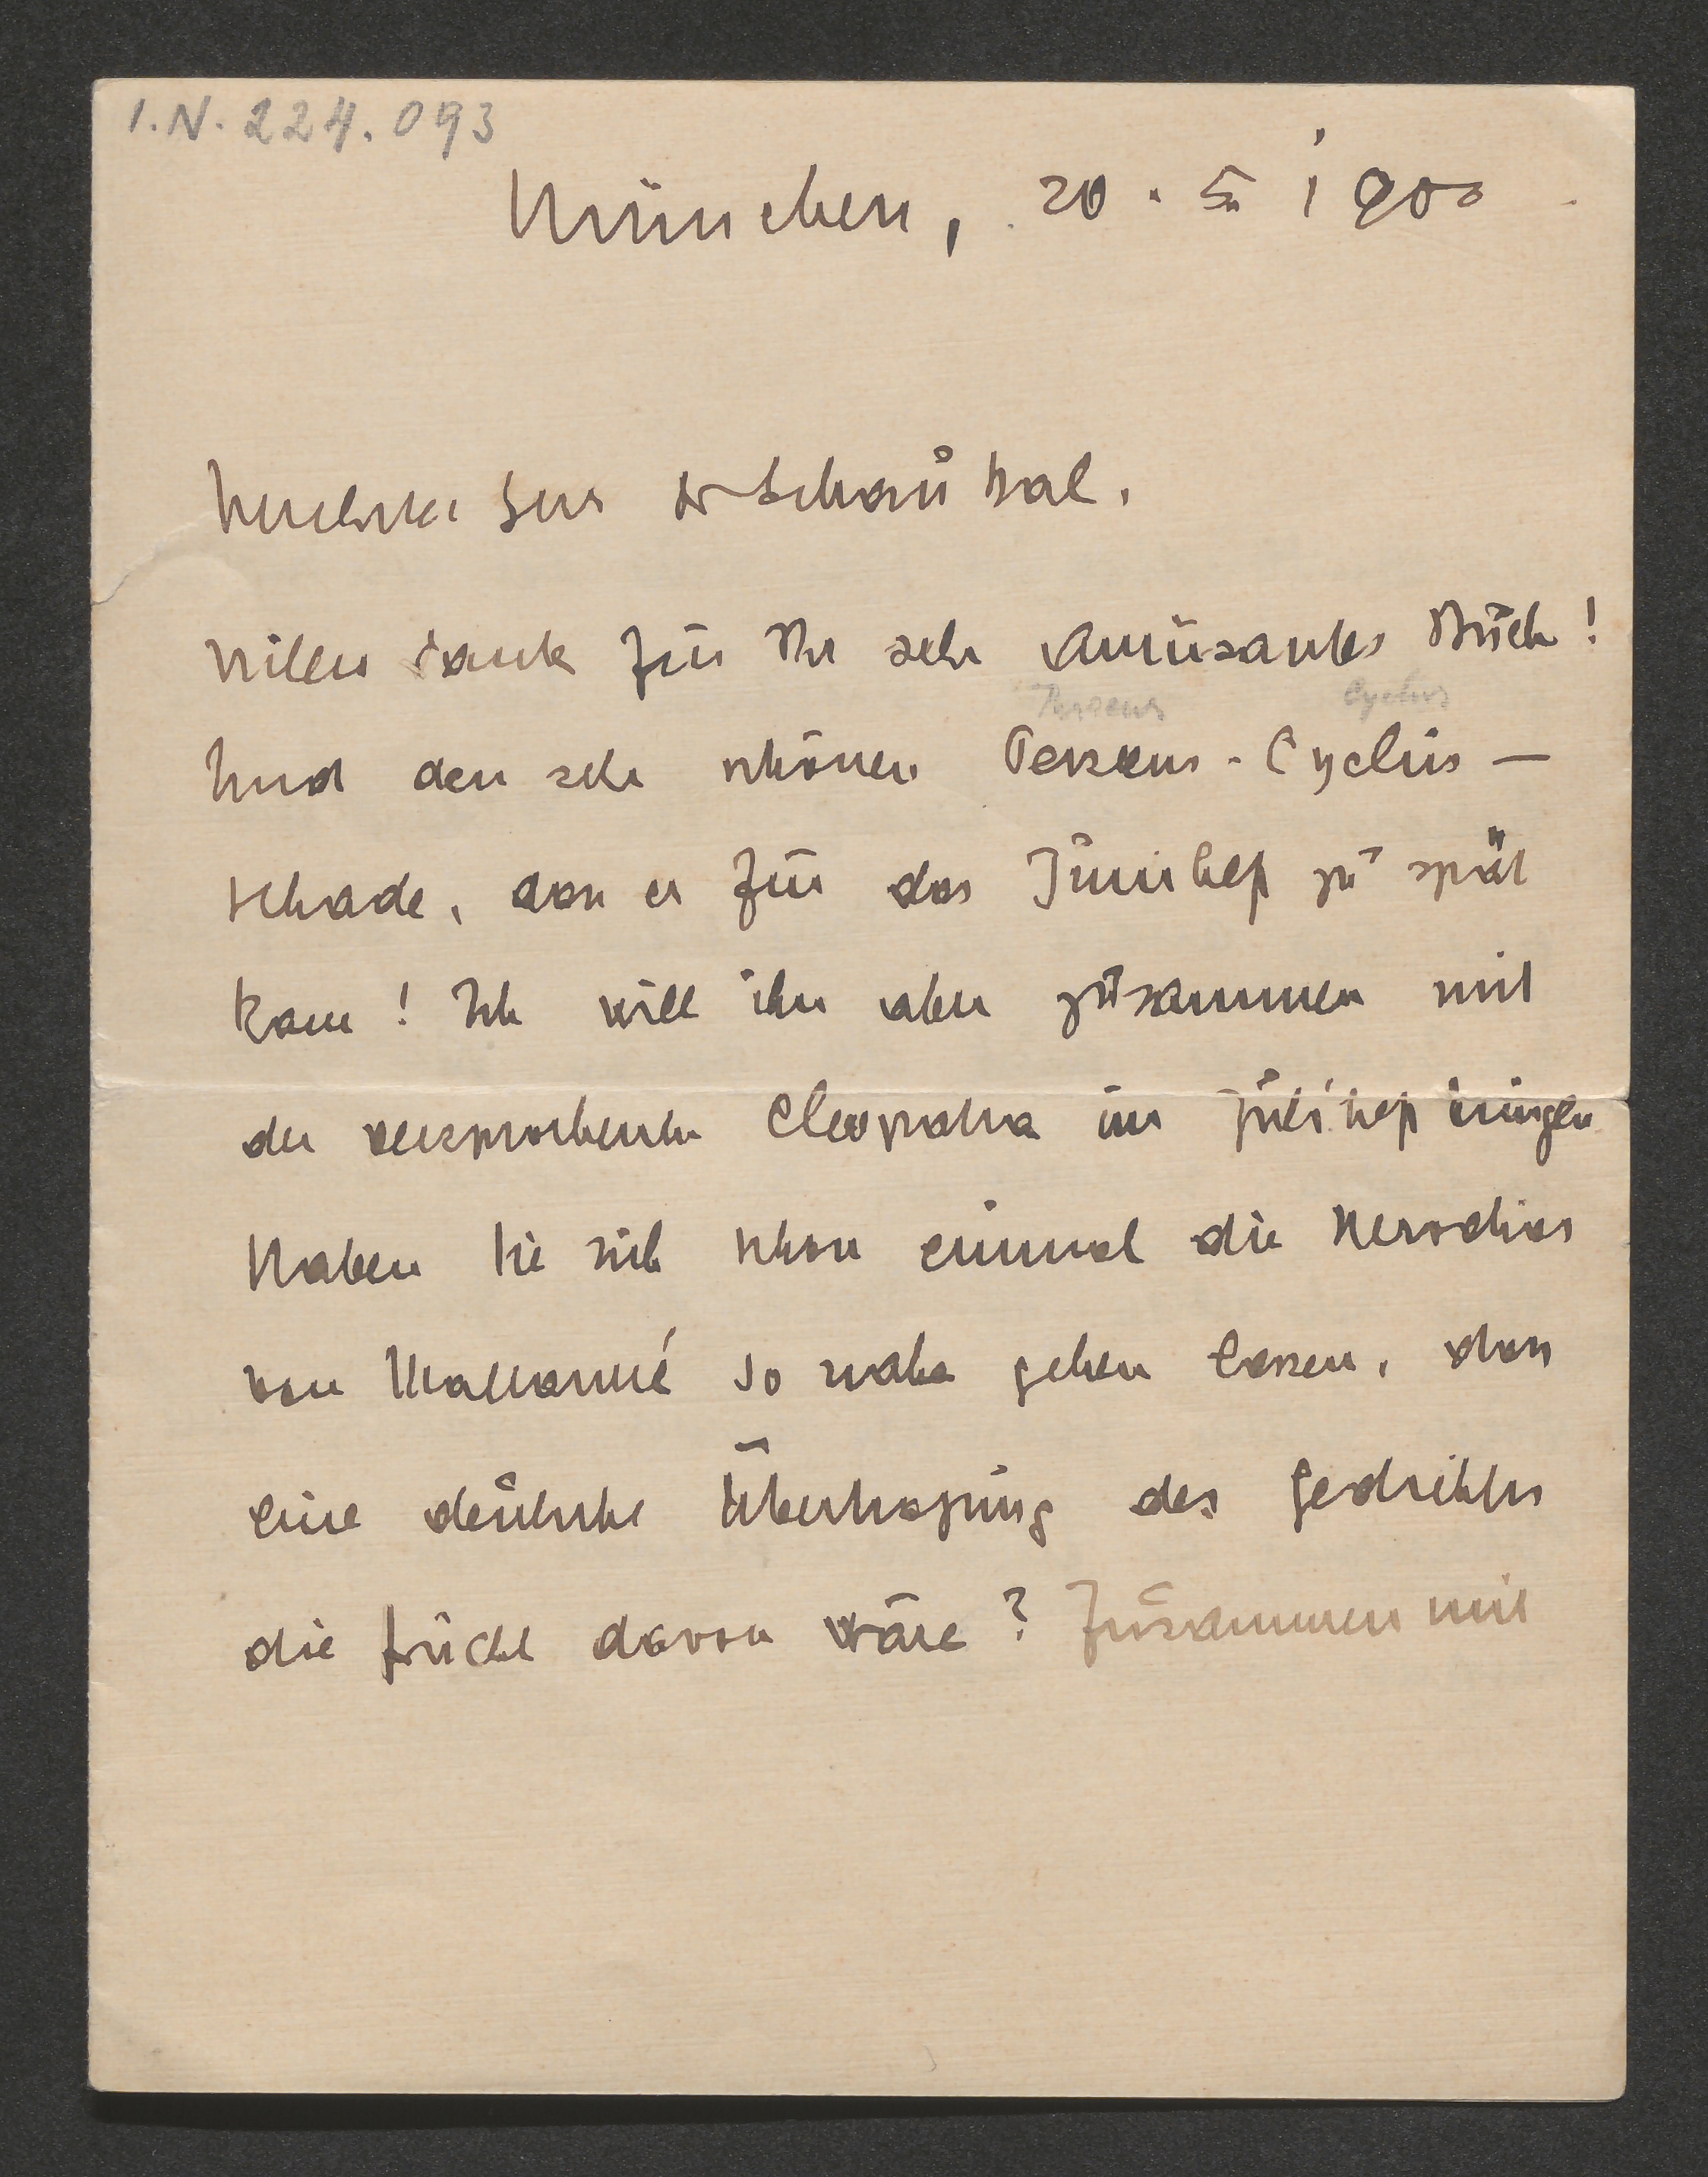 I.N. 224.093
München, 20. 5. 1900.
Verehrter Herr Dr Schaukal.
Vielen Dank für Ihr sehr amüsantes Buch!
Perseus Cyclus
Und den sehr schönen Perseus-Cyclus —
schade, dass er für das Juniheft zu spät
kam! Ich will ihn aber zusammen mit
der versprochenen Cleopatra im Juliheft bringen
Haben Sie sich schon einmal die Herodias
von Mallarmé so nahe gehen lassen, dass
eine deutsche Übertragung des Gedichtes
die Frucht davon wäre? Zusammen mit